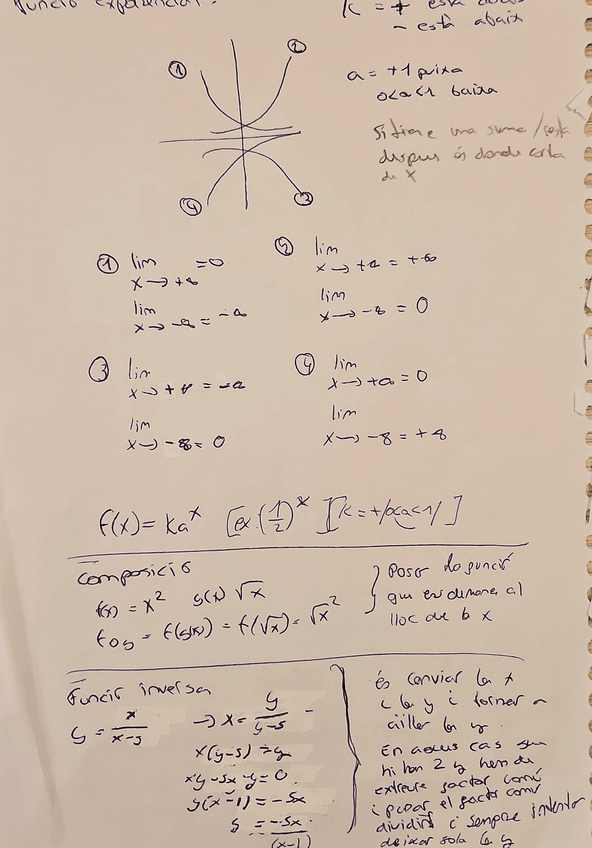 funció exponencial.
K = + està
- està abaix
① ②
④ ③
a = +1 puixa
0<a<1 baixa
Si tiene una suma / resta
despues és donde corta
de x
① lim = 0
x → +∞
lim
x → -∞ = -∞
② lim
x → +∞ = +∞
lim
x → -∞ = 0
③ lim
x → +∞ = -∞
lim
x → -∞ = 0
④ lim
x → +∞ = 0
lim
x → -∞ = +∞
f(x) = Ka^x [ex. (1/2)^x] [K = + / 0<a<1/ ]
Composició
f(x) = x² g(x) √x
fog = f(g(x)) = f(√x) = √x²
Posar la funció
que ens demanen al
lloc de x
Funció inversa
y = x/(x-5) → x = y/(y-5)
x(y-5) = y
xy-5x-y=0.
y(x-1) = -5x
y = -5x/(x-1)
és canviar la x
i la y i tornar a
aïllar la y.
En aques cas
hi han 2 y hem de
extreure factor comú
i pasar el factor comú
dividint i sempre
deixar sola la y